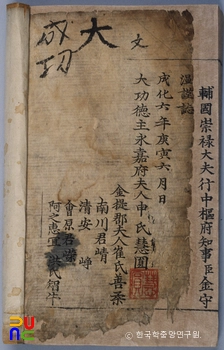 輔國崇祿大夫行中樞府知事臣金守
溫謹誌
成化六年庚寅六月日
大功德主永嘉府夫人申氏慧圓
金提郡夫人崔氏善柔
南川君崝
清安 崢
會原君
阿之惠
文
大
成功
© 한국학중앙연구원